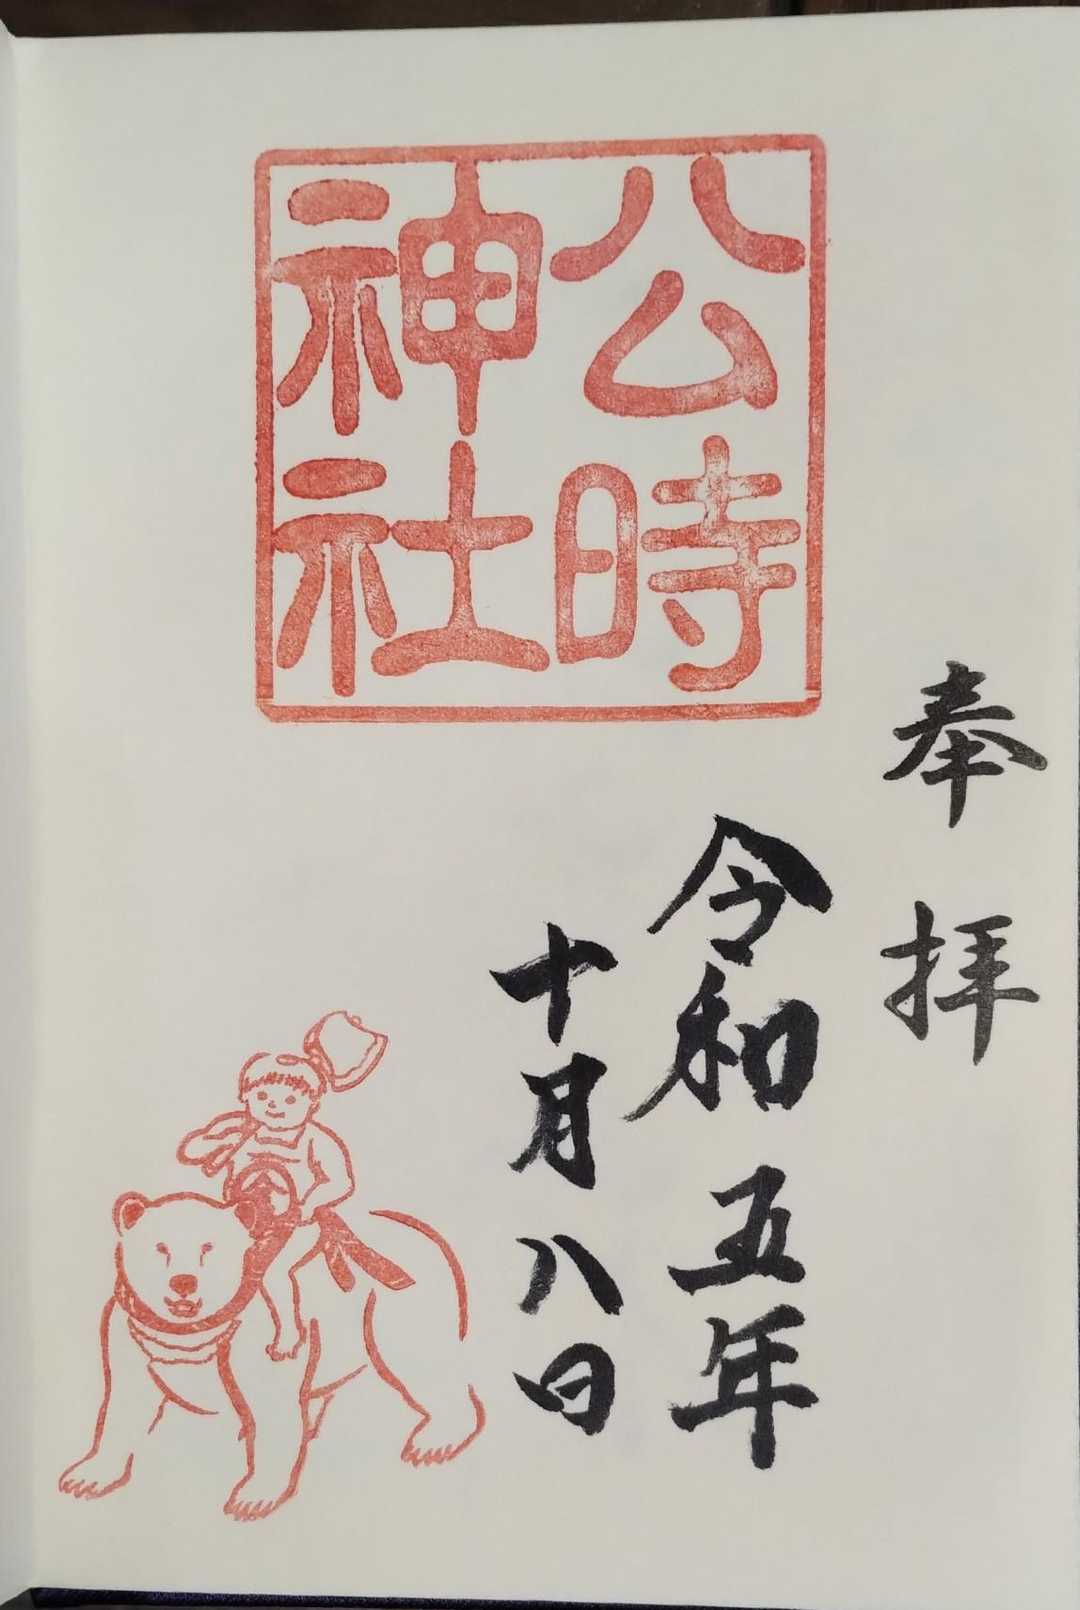 奉拝
公時
神社
令和五年
十月八日